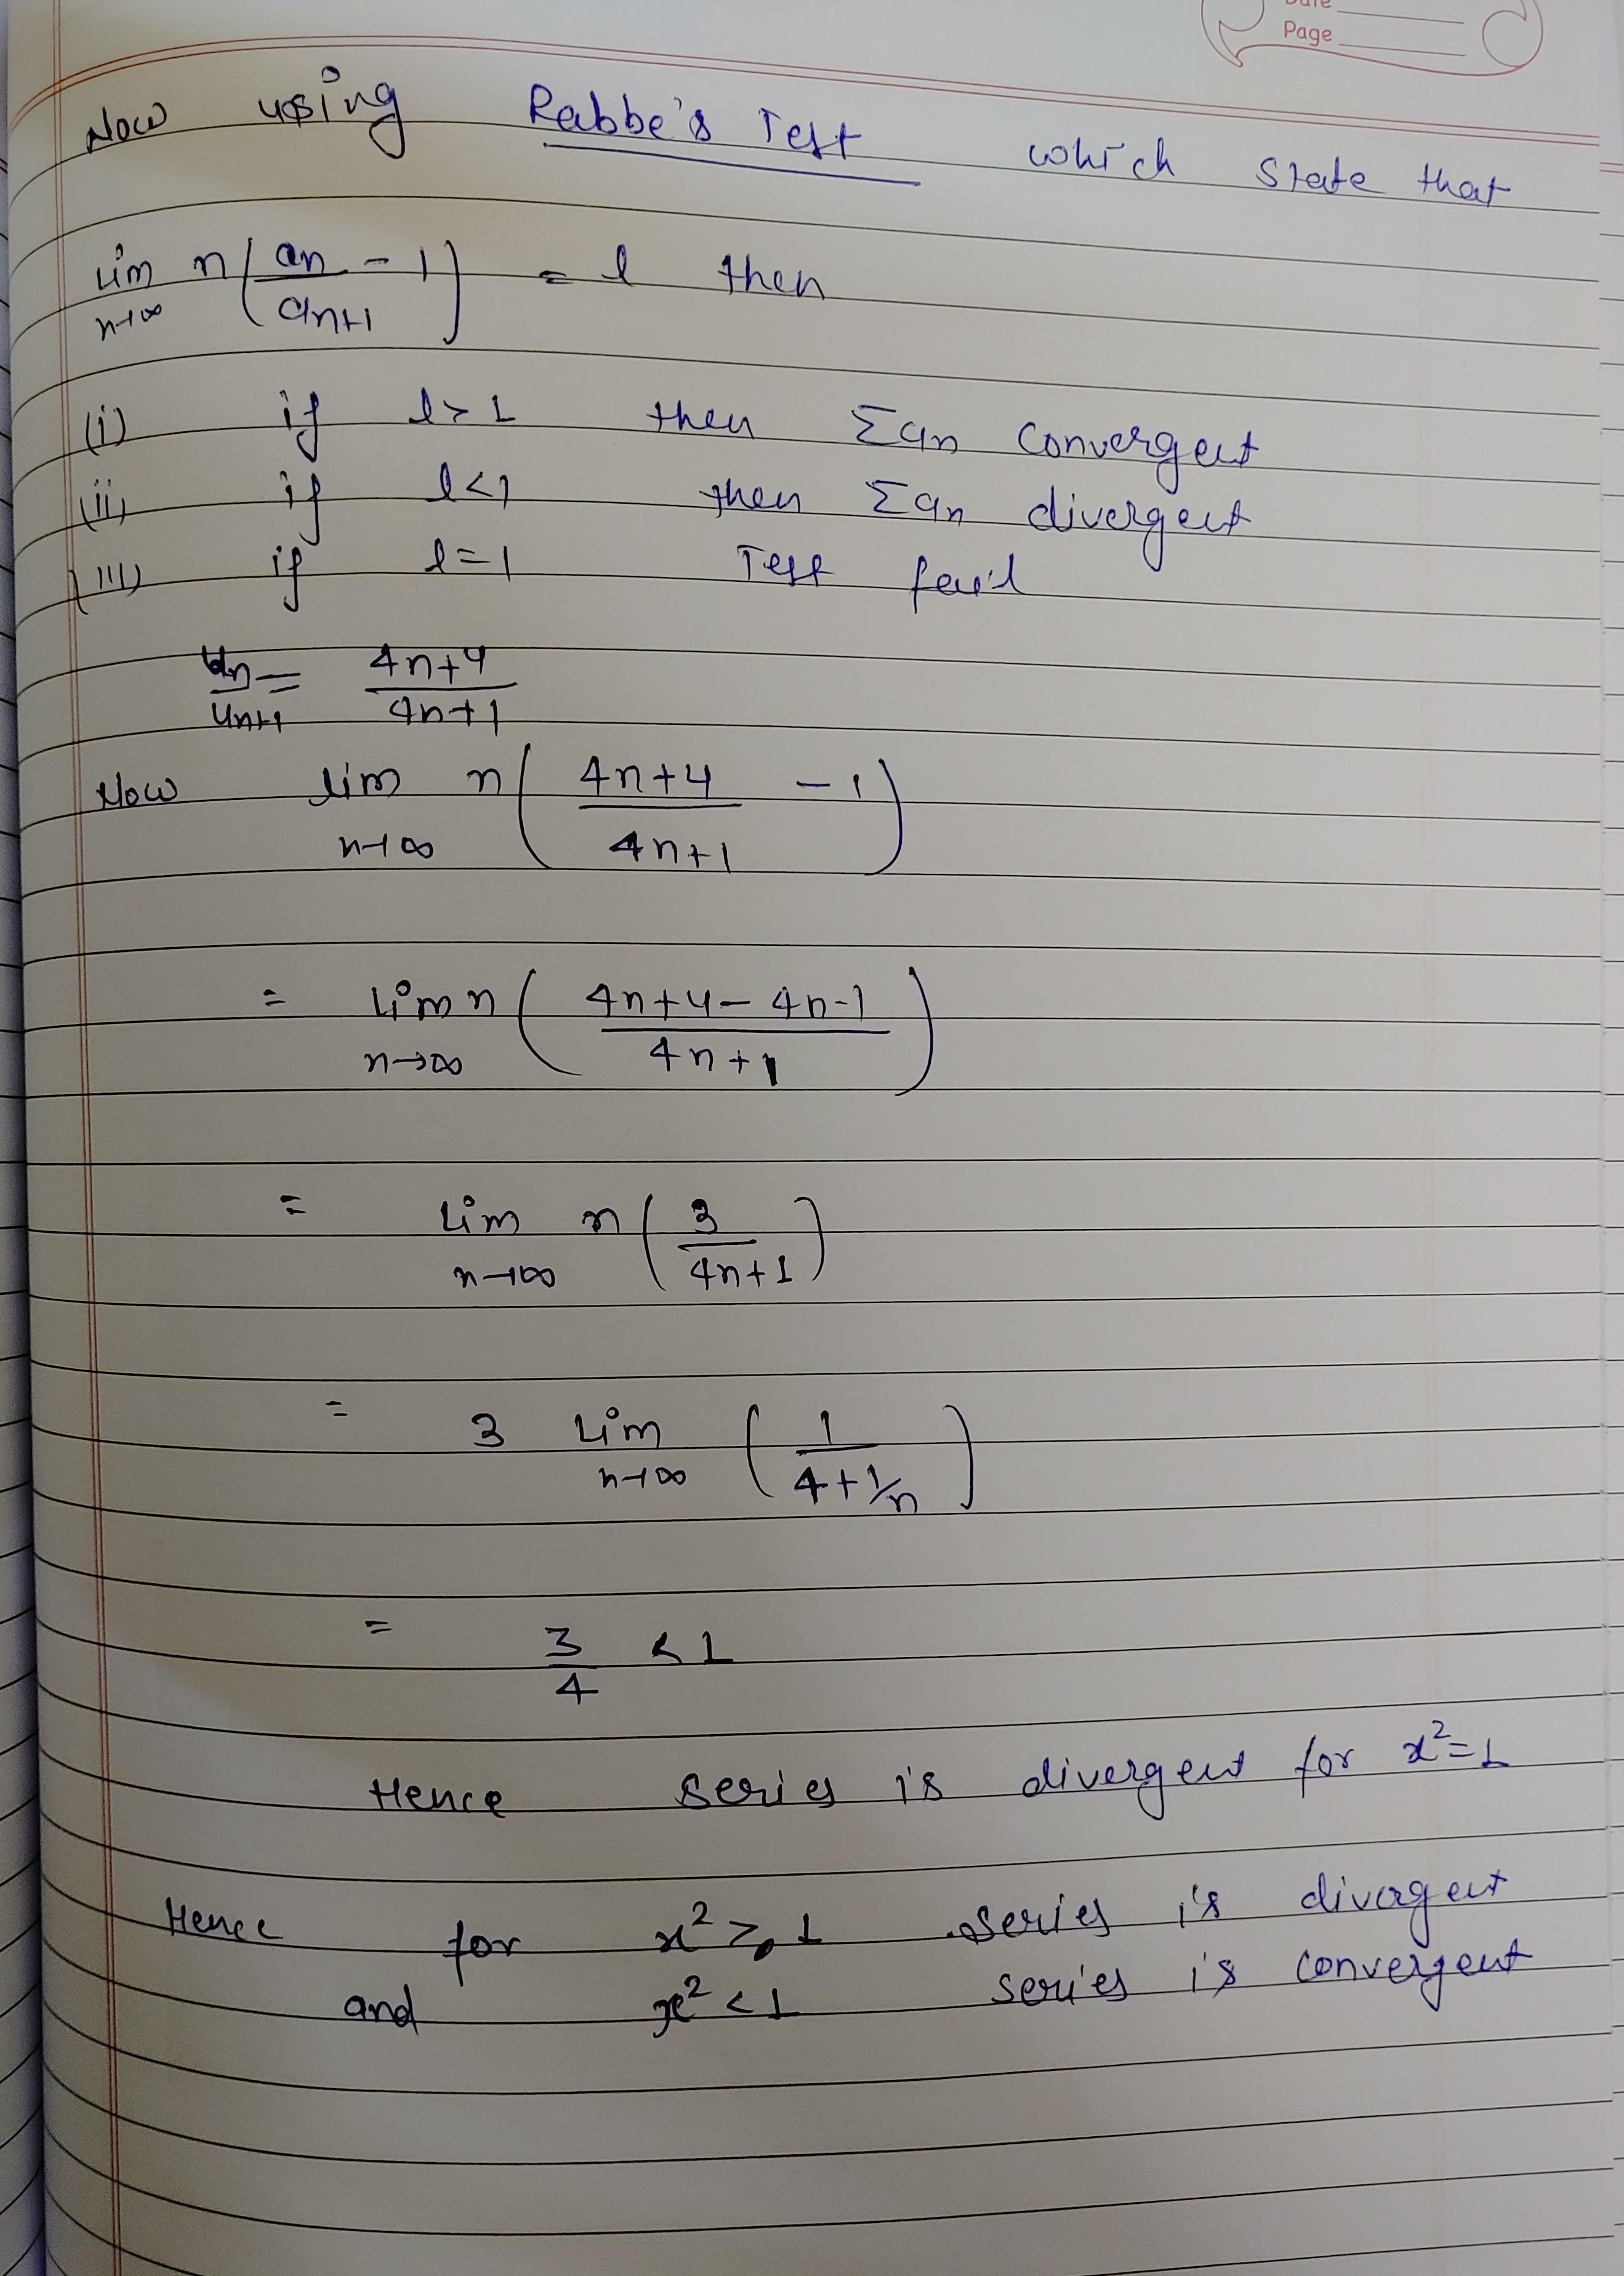 Date
Page
Now using Rabbe's Test which state that
lim n→∞ n(an/an+1 - 1) = l then
(i) if l>1 then Σan convergent
(ii) if l<1 then Σan divergent
(iii) if l=1 Test fail
un/un+1 = 4n+4/4n+1
Now lim n→∞ n(4n+4/4n+1 - 1)
= lim n→∞ n(4n+4-4n-1/4n+1)
= lim n→∞ n(3/4n+1)
= 3 lim n→∞ (1/4+1/n)
= 3/4 < 1
Hence series is divergent for x²=1
Hence for x² ≥ 1 series is divergent
and x² < 1 series is convergent